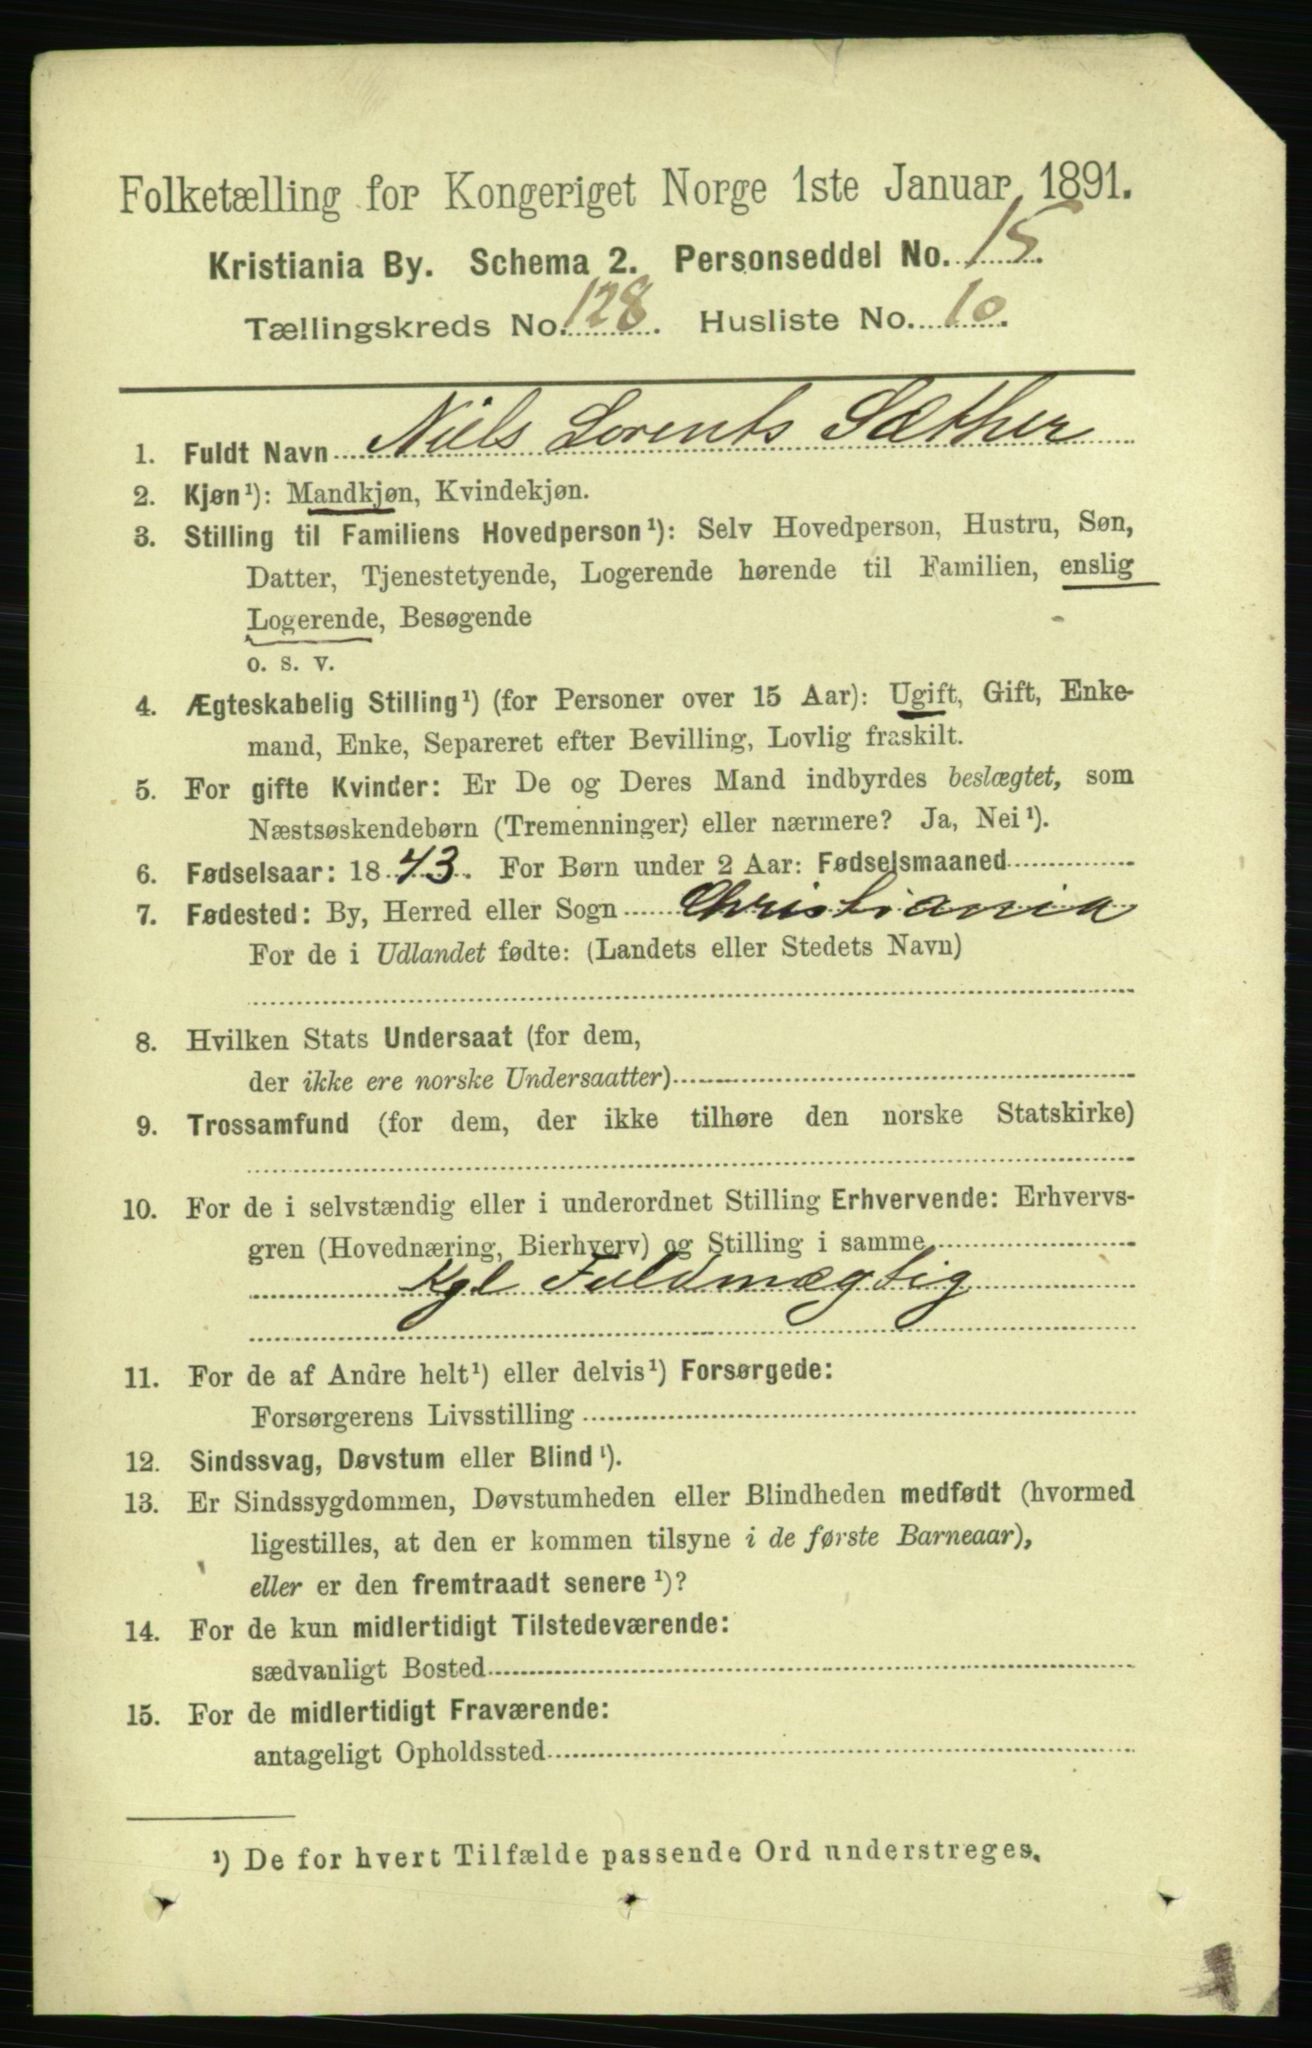 Folketælling for Kongeriget Norge 1ste Januar 1891.
Kristiania By. Schema 2. Personseddel No. 15.
Tællingskreds No. 128. Husliste No. 10.
1. Fuldt Navn Niels Lorents Sæther
2. Kjøn¹): Mandkjøn, Kvindekjøn.
3. Stilling til Familiens Hovedperson¹): Selv Hovedperson, Hustru, Søn,
Datter, Tjenestetyende, Logerende hørende til Familien, enslig
Logerende, Besøgende
o. s. v.
4. Ægteskabelig Stilling¹) (for Personer over 15 Aar): Ugift, Gift, Enke-
mand, Enke, Separeret efter Bevilling, Lovlig fraskilt.
5. For gifte Kvinder: Er De og Deres Mand indbyrdes beslægtet, som
Næstsøskendebørn (Tremenninger) eller nærmere? Ja, Nei¹).
6. Fødselsaar: 1843. For Børn under 2 Aar: Fødselsmaaned
7. Fødested: By, Herred eller Sogn Christiania
For de i Udlandet fødte: (Landets eller Stedets Navn)
8. Hvilken Stats Undersaat (for dem,
der ikke ere norske Undersaatter)
9. Trossamfund (for dem, der ikke tilhøre den norske Statskirke)
10. For de i selvstændig eller i underordnet Stilling Erhvervende: Erhvervs-
gren (Hovednæring, Bierhverv) og Stilling i samme
Kgl Fuldmægtig
11. For de af Andre helt¹) eller delvis¹) Forsørgede:
Forsørgerens Livsstilling
12. Sindssvag, Døvstum eller Blind¹).
13. Er Sindssygdommen, Døvstumheden eller Blindheden medfødt (hvormed
ligestilles, at den er kommen tilsyne i de første Barneaar),
eller er den fremtraadt senere¹)?
14. For de kun midlertidigt Tilstedeværende:
sædvanligt Bosted
15. For de midlertidigt Fraværende:
antageligt Opholdssted
¹) De for hvert Tilfælde passende Ord understreges.